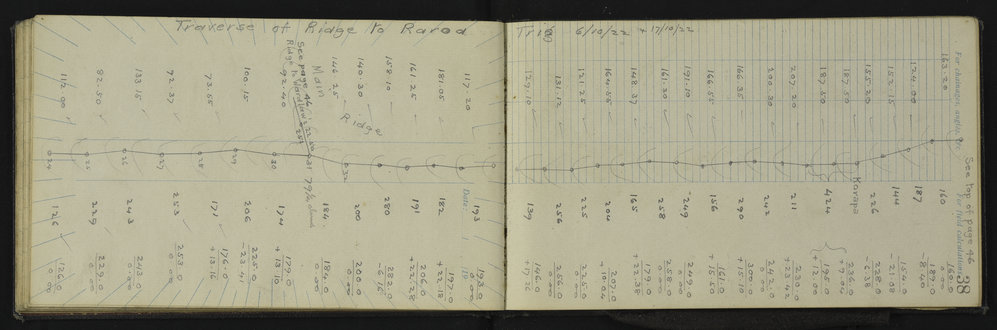 Traverse of Ridge to Rarod Trig 6/10/22 + 17/10/22
112.00
82.50
133.15
72.37
73.55
100.15
92.40
Ridge to Wardlaw's
See page 46
Main
146.25
Ridge
140.30
158.10
161.25
181.05
117.20
129.10
131.72
121.25
164.55
148.37
161.30
191.10
166.55
166.35
200.30
207.20
187.50
187.50
155.20
152.15
124.00
163.20
For chainages, angles, &c.
24
25
26
27
28
29
30
31
32
Karapa
126
229
243
253
171
206
174
184
200
280
191
182
193
Date:
19
139
256
225
204
165
258
249
156
290
242
211
424
226
144
187
160
See top of page 46
For field calculations
38
126.0
0.00
229.0
0.00
243.0
0.00
253.0
0.00
176.0
+ 13.16
225.0
- 23.41
179.0
+ 13.10
184.0
0.00
200.0
0.00
282.0
- 6.16
206.0
+ 22.28
197.0
+ 22.18
193.0
0.00
146.0
+ 17.26
256.0
0.00
225.0
0.00
207.0
+ 10.04
179.0
+ 22.38
258.0
0.00
249.0
0.00
161.0
+ 15.50
300.0
+ 15.10
242.0
0.00
230.0
+ 23.42
195.0
+ 12.00
236.0
+ 9.04
228.0
- 6.88
154.0
- 21.08
189.0
- 8.40
160.0
0.00